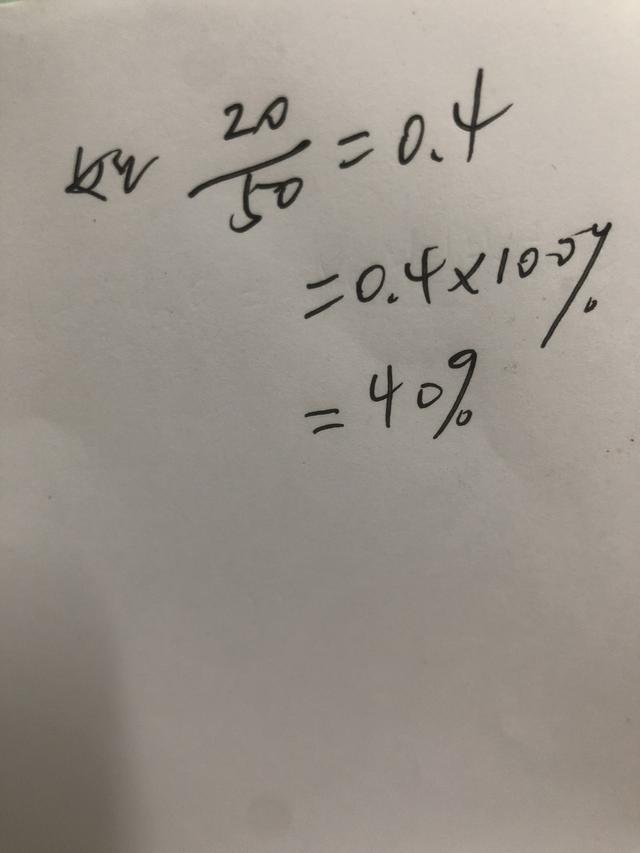 20/50 = 0.4
= 0.4 × 100%
= 40%